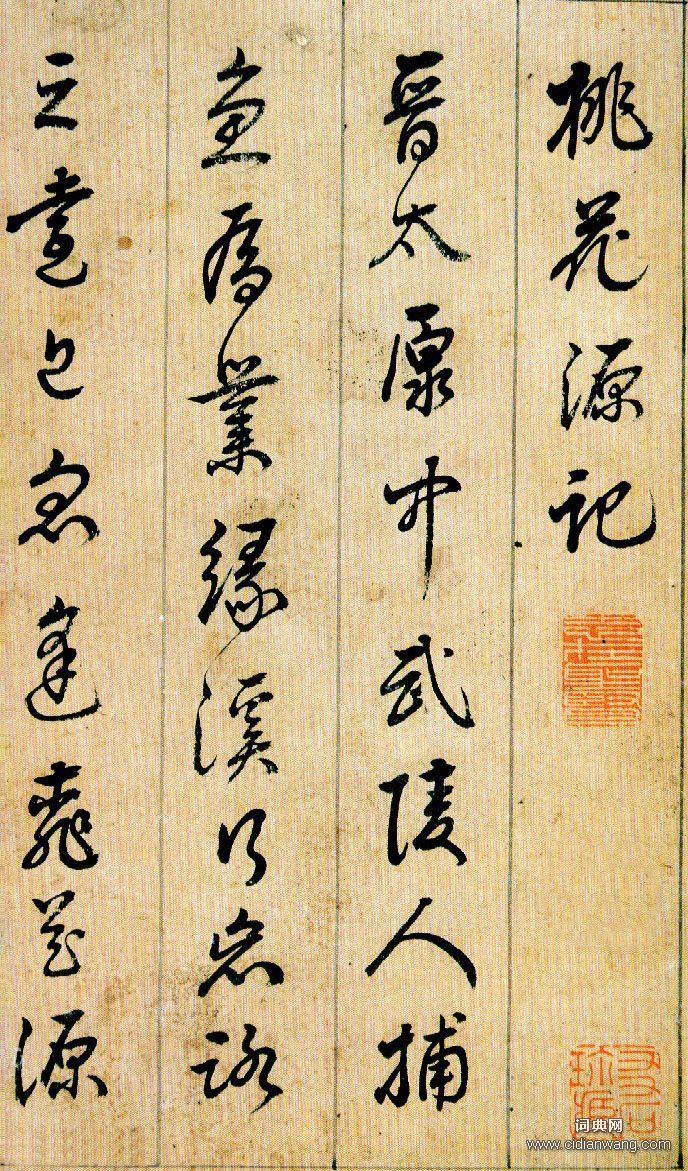 桃花源記
晉太原中武陵人捕
魚為業緣溪行忘路
之遠近忽逢桃花源
词典网
www.cidianwang.com